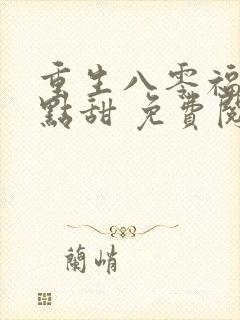 重生八零福
點甜 免費閱
蘭峭